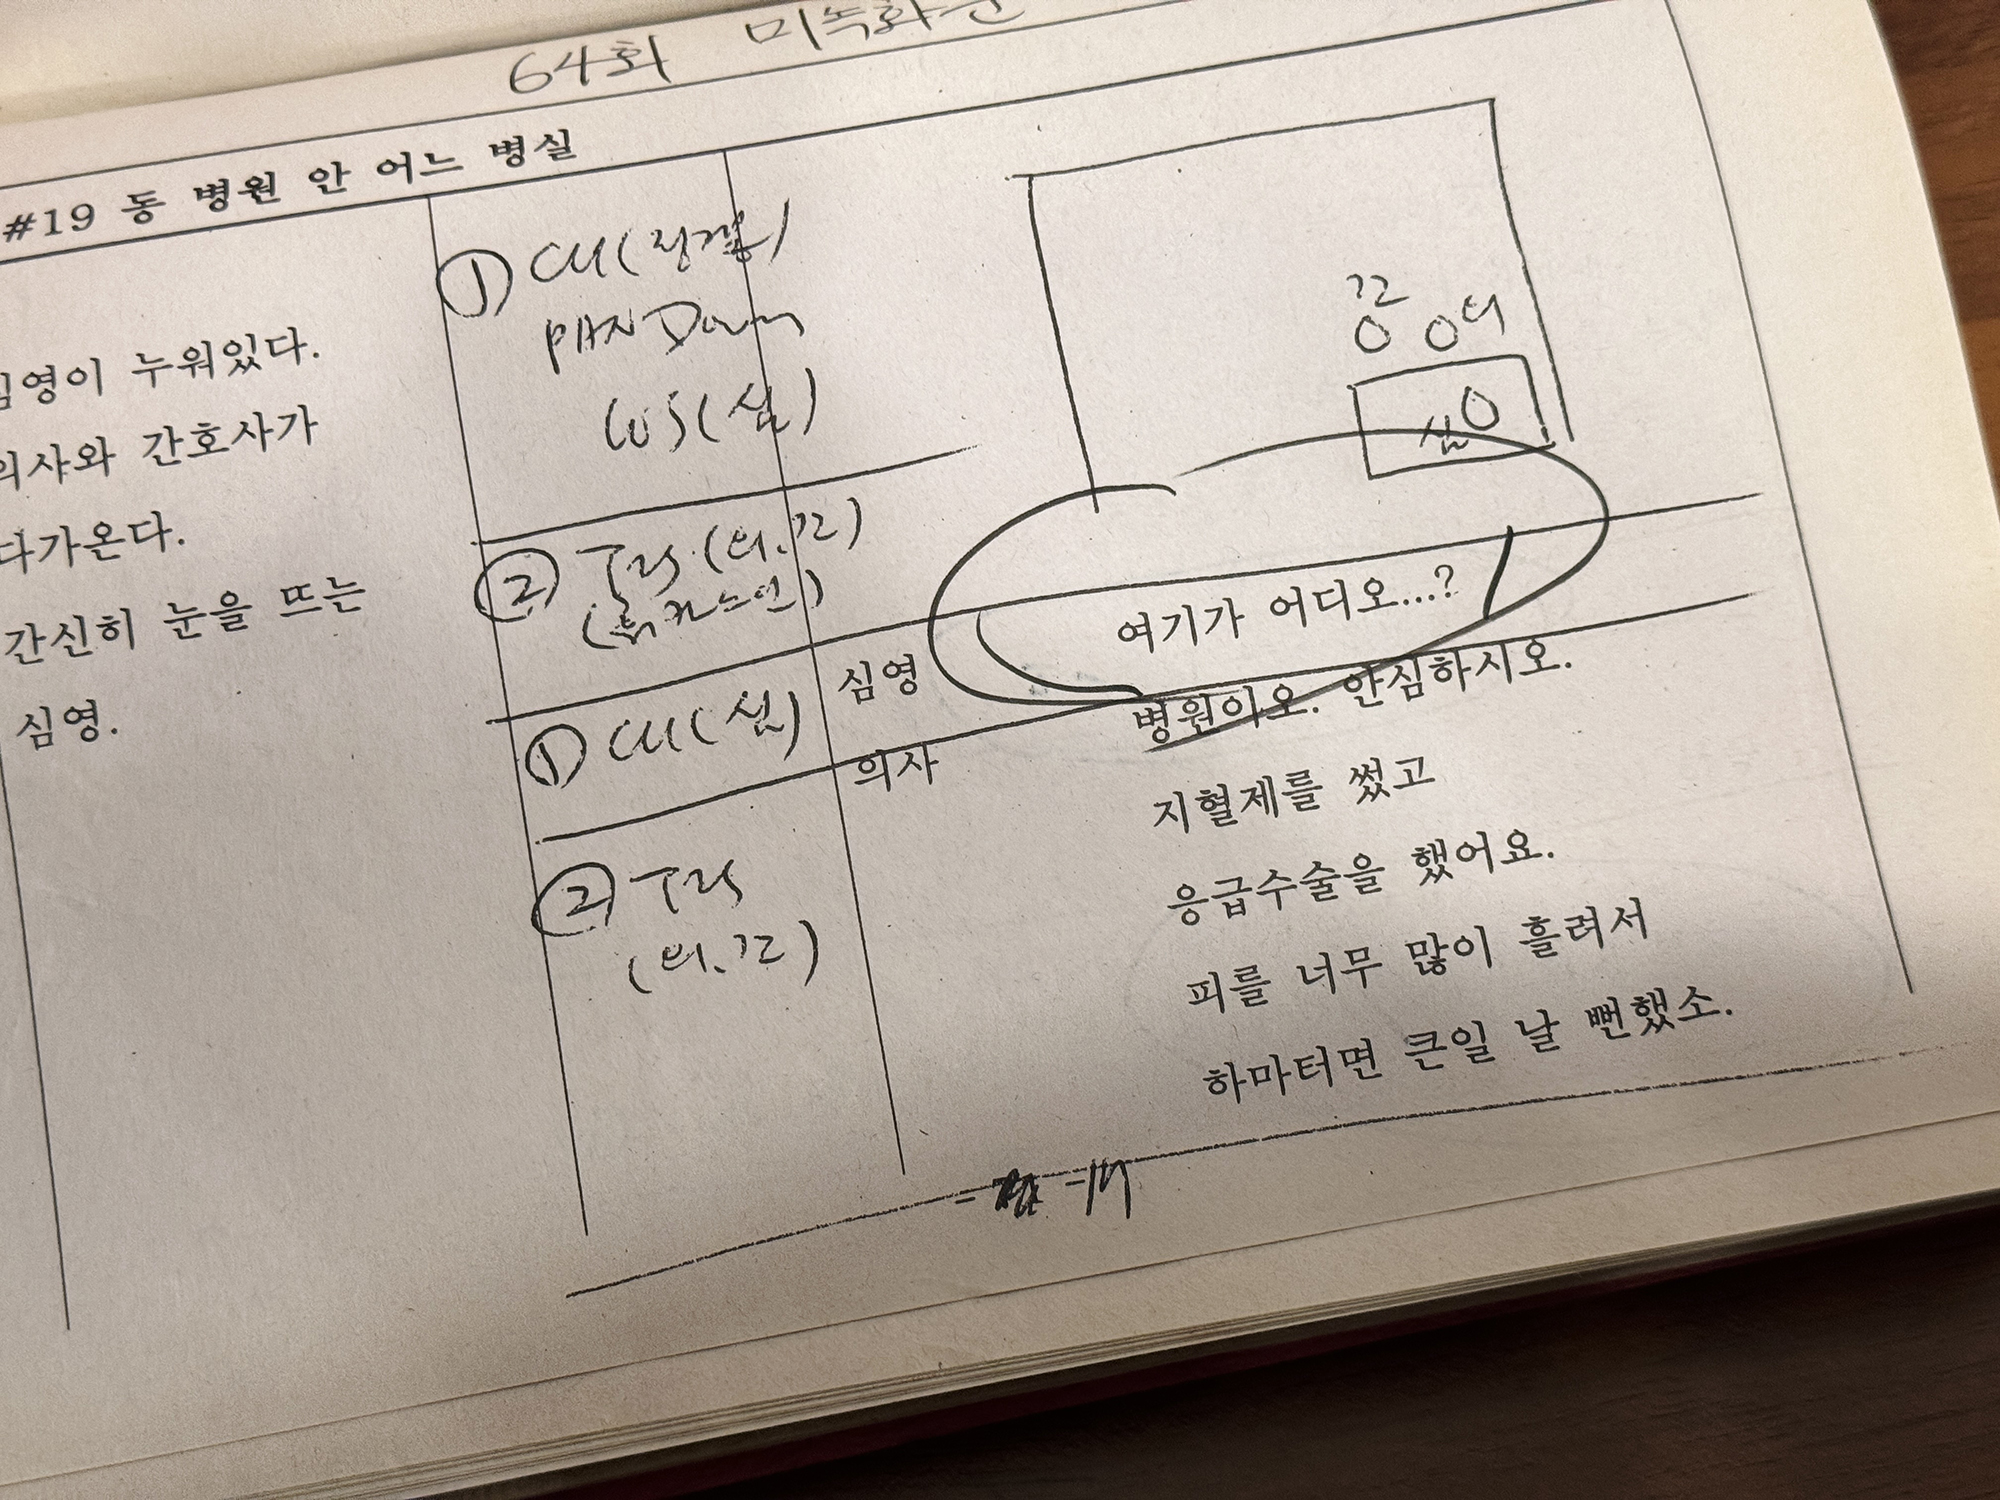 64회 미녹화분
#19 동 병원 안 어느 병실
심영이 누워있다.
의사와 간호사가
다가온다.
간신히 눈을 뜨는
심영.
① CU(
PAN Down
WS(심)
② T2S(의.간)
① CU(심)
② T2S
(의.간)
간 의
심
심영 여기가 어디오...?
의사 병원이오. 안심하시오.
지혈제를 썼고
응급수술을 했어요.
피를 너무 많이 흘려서
하마터면 큰일 날 뻔했소.